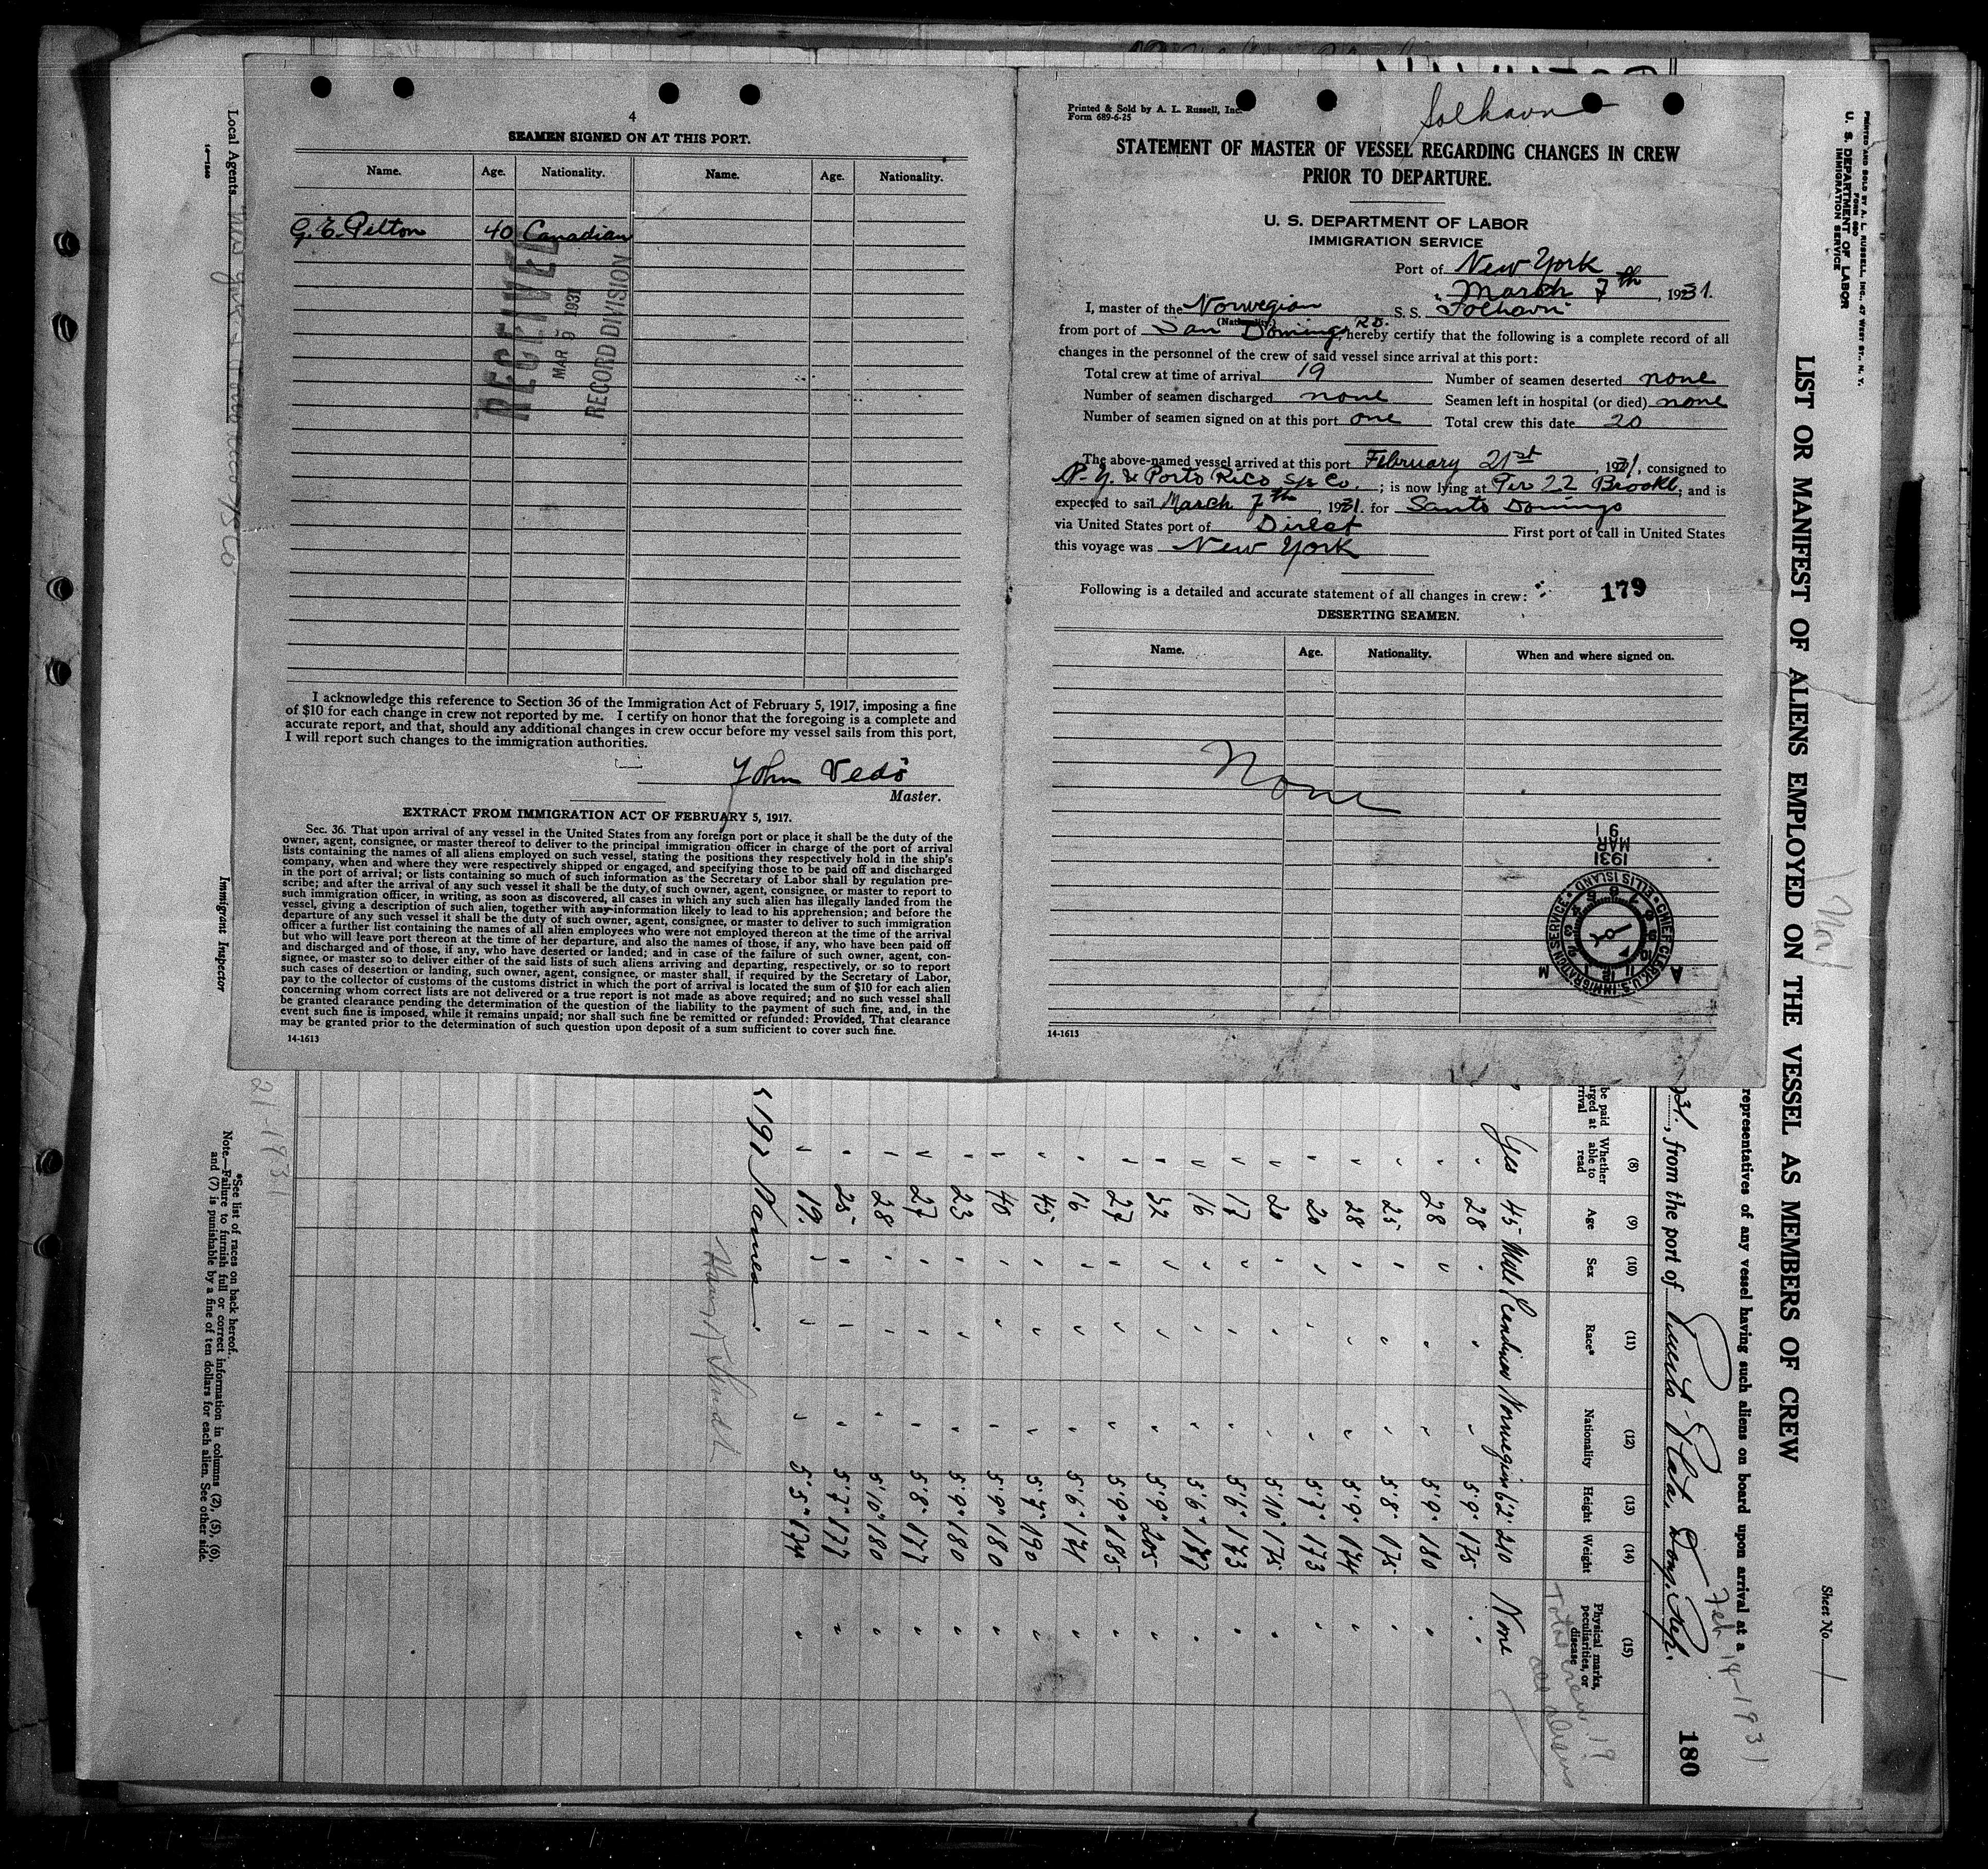 4
SEAMEN SIGNED ON AT THIS PORT.
Name. Age. Nationality. Name. Age. Nationality.
G. E. Pelton 40 Canadian
RECEIVED
MAR 9 1931
RECORD DIVISION
I acknowledge this reference to Section 36 of the Immigration Act of February 5, 1917, imposing a fine
of $10 for each change in crew not reported by me. I certify on honor that the foregoing is a complete and
accurate report, and that, should any additional changes in crew occur before my vessel sails from this port,
I will report such changes to the immigration authorities.
John Vedö
Master.
EXTRACT FROM IMMIGRATION ACT OF FEBRUARY 5, 1917.
Sec. 36. That upon arrival of any vessel in the United States from any foreign port or place it shall be the duty of the
owner, agent, consignee, or master thereof to deliver to the principal immigration officer in charge of the port of arrival
lists containing the names of all aliens employed on such vessel, stating the positions they respectively hold in the ship's
company, when and where they were respectively shipped or engaged, and specifying those to be paid off and discharged
in the port of arrival; or lists containing so much of such information as the Secretary of Labor shall by regulation pre-
scribe; and after the arrival of any such vessel it shall be the duty of such owner, agent, consignee, or master to report to
such immigration officer, in writing, as soon as discovered, all cases in which any such alien has illegally landed from the
vessel, giving a description of such alien, together with any information likely to lead to his apprehension; and before the
departure of any such vessel it shall be the duty of such owner, agent, consignee, or master to deliver to such immigration
officer a further list containing the names of all alien employees who were not employed thereon at the time of the arrival
but who will leave port thereon at the time of her departure, and also the names of those, if any, who have been paid off
and discharged and of those, if any, who have deserted or landed; and in case of the failure of such owner, agent, con-
signee, or master so to deliver either of the said lists of such aliens arriving and departing, respectively, or so to report
such cases of desertion or landing, such owner, agent, consignee, or master shall, if required by the Secretary of Labor,
pay to the collector of customs of the customs district in which the port of arrival is located the sum of $10 for each alien
concerning whom correct lists are not delivered or a true report is not made as above required; and no such vessel shall
be granted clearance pending the determination of the question of the liability to the payment of such fine, and, in the
event such fine is imposed, while it remains unpaid; nor shall such fine be remitted or refunded: Provided, That clearance
may be granted prior to the determination of such question upon deposit of a sum sufficient to cover such fine.
14-1613
Printed & Sold by A. L. Russell, Inc.
Form 689-6-25
Solhavn
STATEMENT OF MASTER OF VESSEL REGARDING CHANGES IN CREW
PRIOR TO DEPARTURE.
U. S. DEPARTMENT OF LABOR
IMMIGRATION SERVICE
Port of New York
March 7th, 1931.
I, master of the Norwegian S. S. "Solhavn"
(Nationality)
from port of San Domingo R.D., hereby certify that the following is a complete record of all
changes in the personnel of the crew of said vessel since arrival at this port:
Total crew at time of arrival 19 Number of seamen deserted none
Number of seamen discharged none Seamen left in hospital (or died) none
Number of seamen signed on at this port one Total crew this date 20
The above-named vessel arrived at this port February 21st, 1931, consigned to
N.Y. & Porto Rico SS Co.; is now lying at Pier 22 Brookl; and is
expected to sail March 7th, 1931. for Santo Domingo
via United States port of Direct First port of call in United States
this voyage was New York
Following is a detailed and accurate statement of all changes in crew:
179
DESERTING SEAMEN.
Name. Age. Nationality. When and where signed on.
None
1931
MAR
9
CHIEF CLERK U.S. IMMIGRATION SERVICE ELLIS ISLAND
A M
14-1613
PRINTED AND SOLD BY A. L. RUSSELL, INC., 47 WEST ST., N. Y.
FORM 680
U. S. DEPARTMENT OF LABOR
IMMIGRATION SERVICE
Sheet No. 1
LIST OR MANIFEST OF ALIENS EMPLOYED ON THE VESSEL AS MEMBERS OF CREW
representatives of any vessel having such aliens on board upon arrival at a
Feb 14-1931
1931., from the port of Puerto Plata, Dom. Rep.
180
(8) (9) (10) (11) (12) (13) (14) (15)
Whether able to read Age Sex Race* Nationality Height Weight Physical marks, peculiarities, or disease
Total crew 19
all aliens
Yes 45 Male Scandinav Norwegian 6'2" 210 None
" 28 " " " 5'9" 175 "
" 28 " " " 5'9" 180 "
" 25 " " " 5'8" 175 "
" 28 " " " 5'9" 174 "
" 20 " " " 5'7" 173 "
" 20 " " " 5'10" 175 "
" 17 " " " 5'6" 173 "
" 16 " " " 5'6" 177 "
" 32 " " " 5'9" 205 "
" 27 " " " 5'9" 185 "
" 16 " " " 5'6" 171 "
" 45 " " " 5'7" 190 "
" 40 " " " 5'9" 180 "
" 23 " " " 5'9" 180 "
" 27 " " " 5'8" 177 "
" 28 " " " 5'10" 180 "
" 25 " " " 5'7" 177 "
" 19 " " " 5'5" 174 "
Names
21-1931
*See list of races on back hereof.
Note.—Failure to furnish full or correct information in columns (2), (5), (6),
and (7) is punishable by a fine of ten dollars for each alien. See other side.
Immigrant Inspector
Local Agents
14—1240